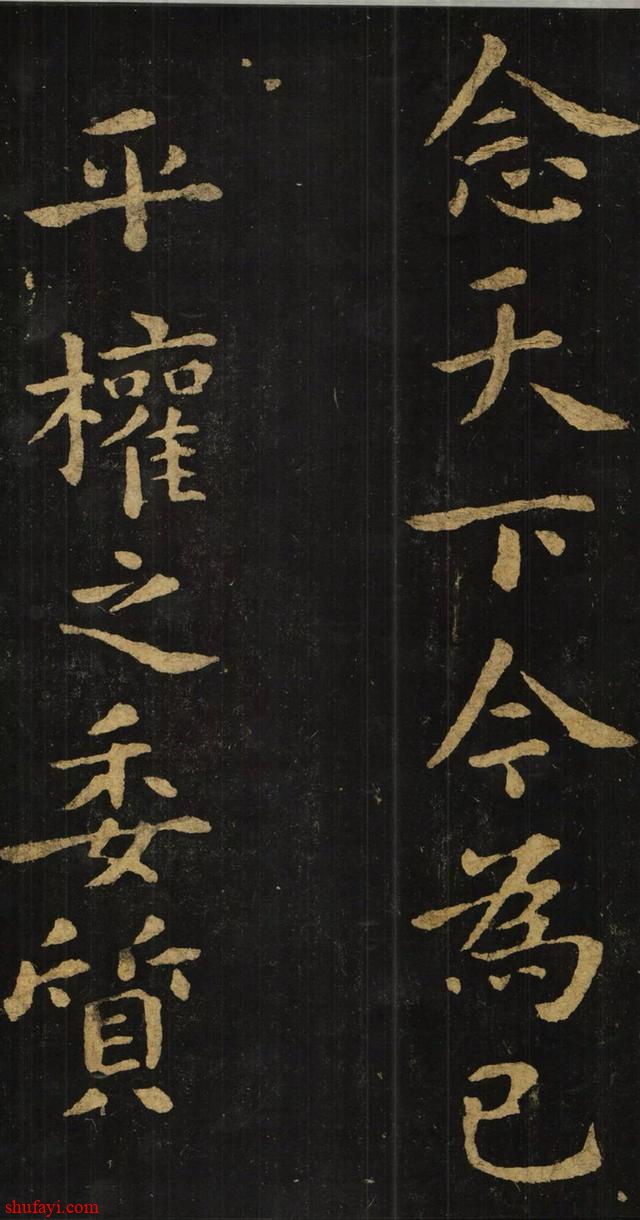 念天下今為已
平權之委質
shufayi.com